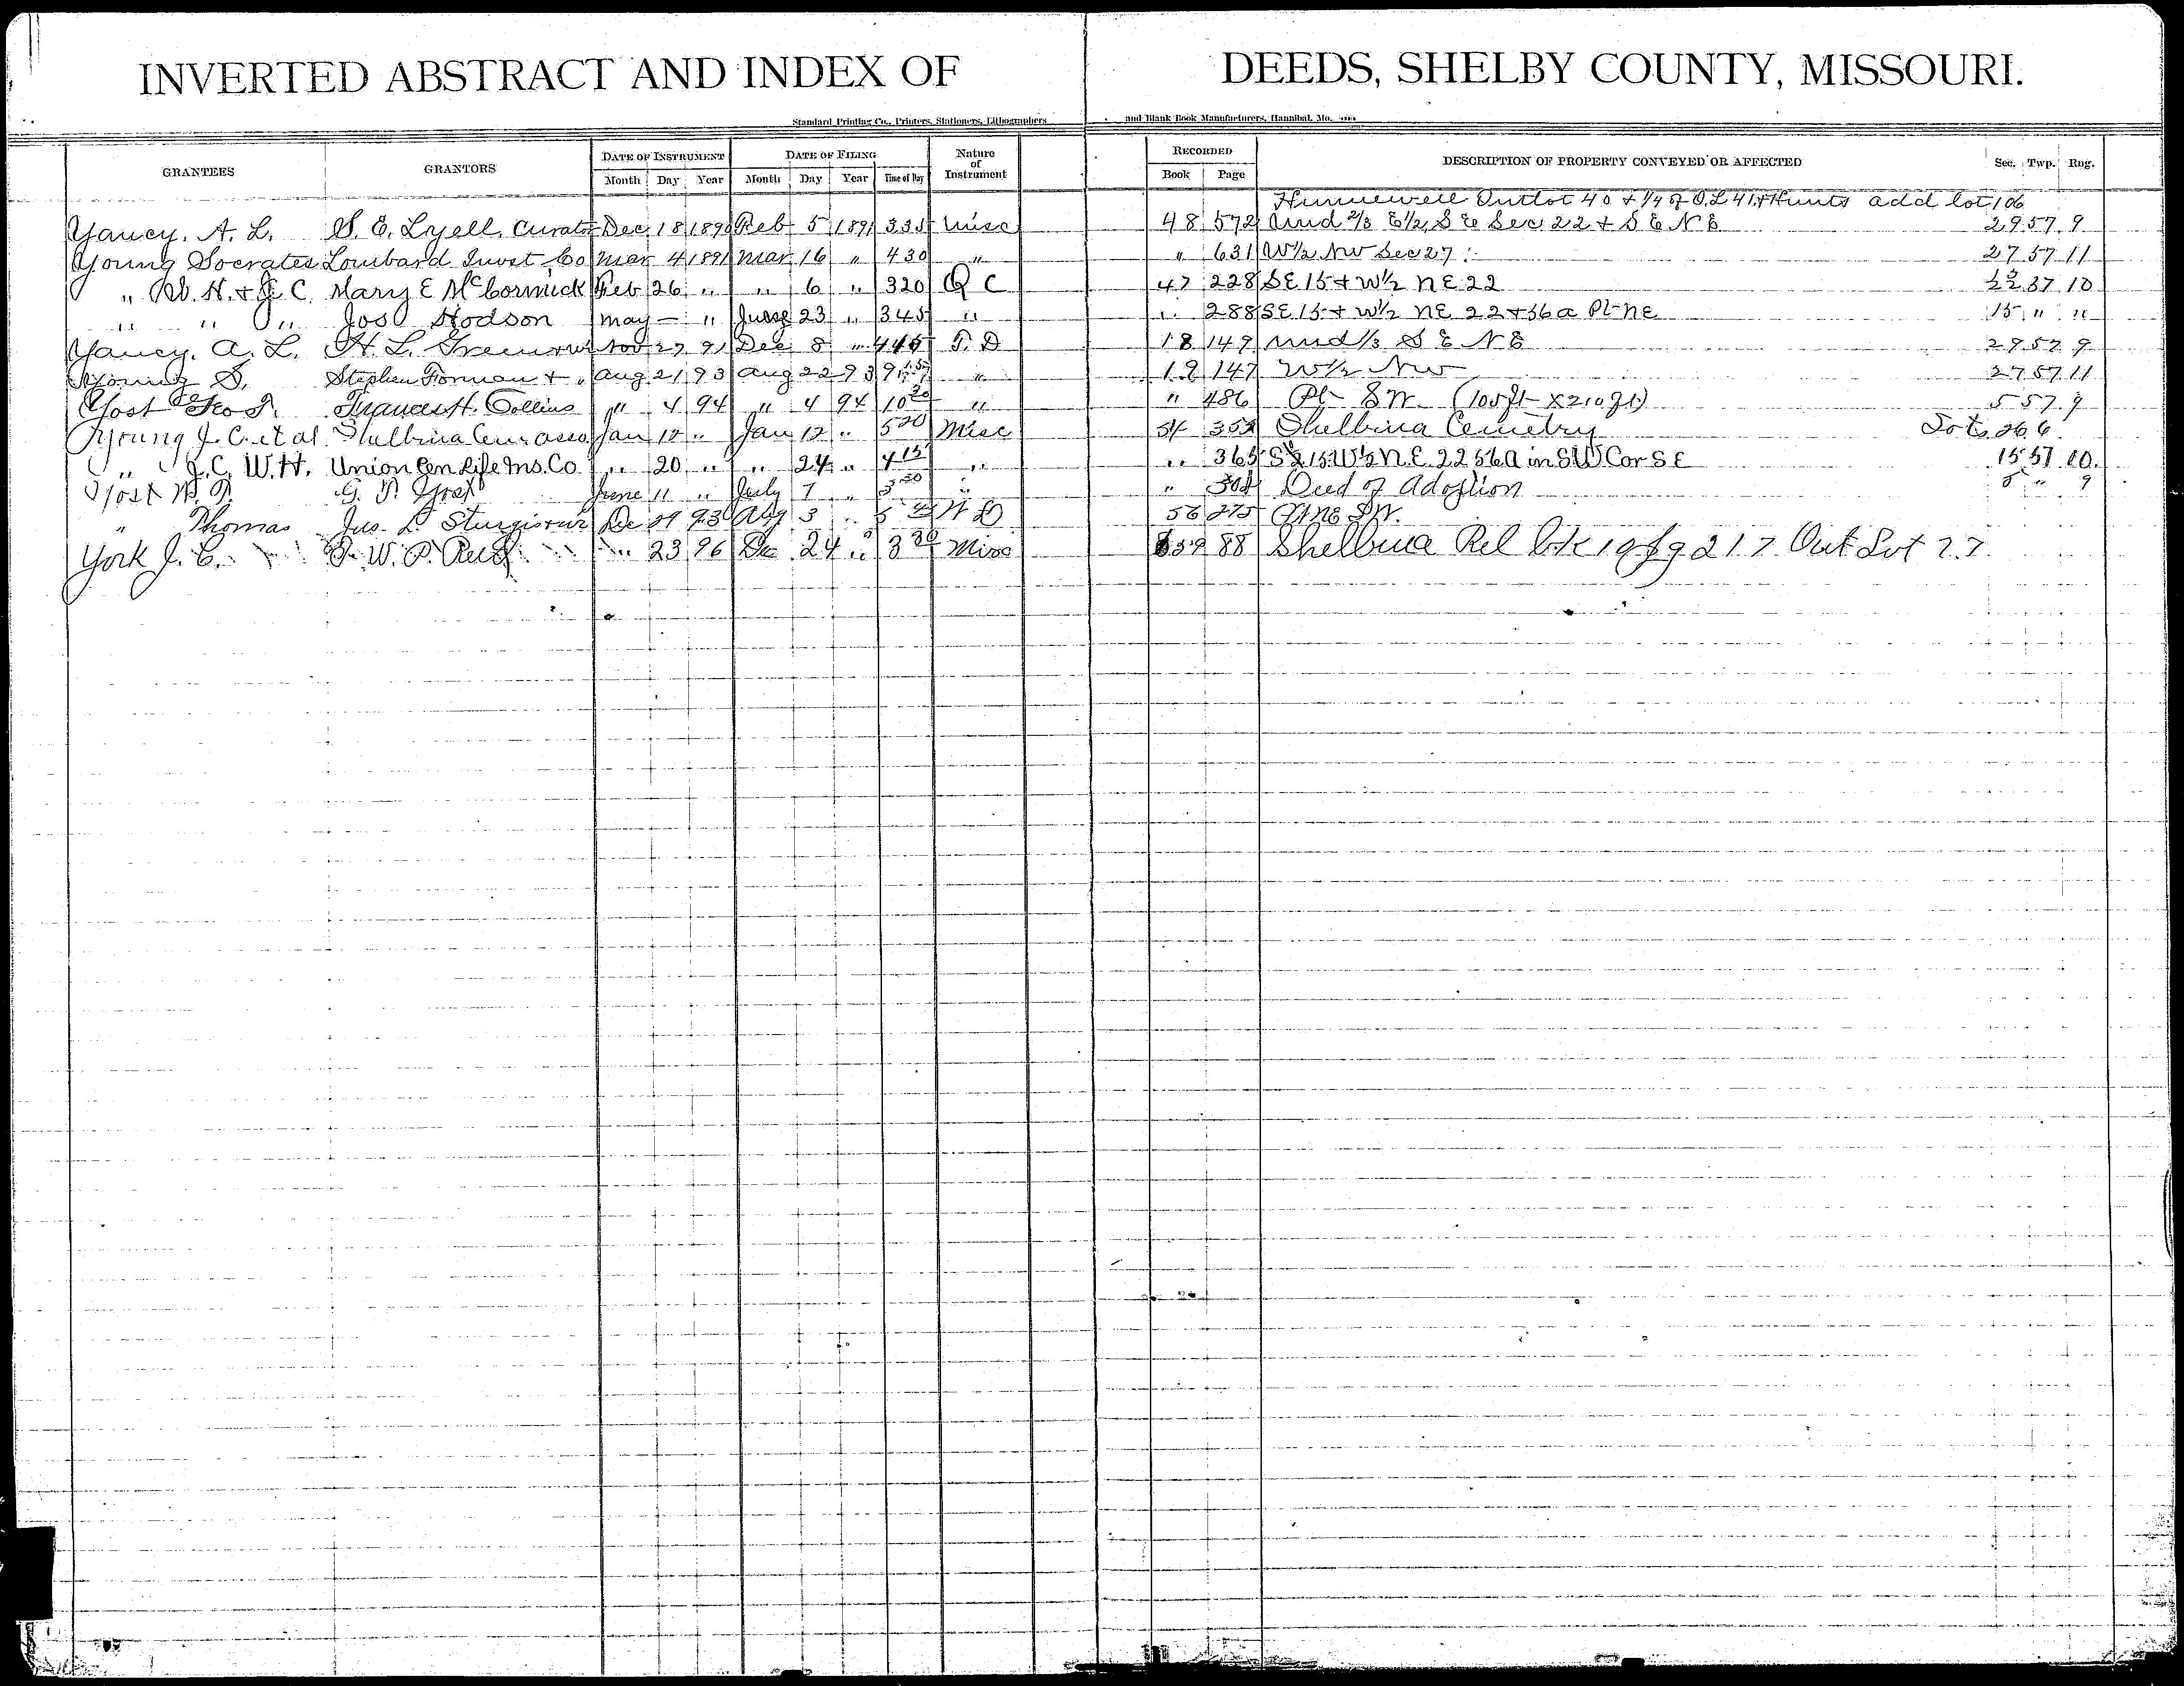 INVERTED ABSTRACT AND INDEX OF DEEDS, SHELBY COUNTY, MISSOURI.
Standard Printing Co., Printers, Stationers, Lithographers and Blank Book Manufacturers, Hannibal, Mo.
GRANTEES GRANTORS DATE OF INSTRUMENT DATE OF FILING Nature of Instrument RECORDED DESCRIPTION OF PROPERTY CONVEYED OR AFFECTED Sec. Twp. Rng.
Month Day Year Month Day Year Time of Day Book Page
Hunnewell Outlot 40 + 1/4 of O.L 41 + Hunts add lot 106
Yancy, A. L. S. E. Lyell, Curator Dec 18 1890 Feb 5 1891 335 Misc 48 572 Und 2/3 E1/2 S E Sec 22 + S E N E 29 57 9
Young Socrates Lombard Invst Co Mar 4 1891 Mar 16 " 430 " " 631 W1/2 NW Sec 27 27 57 11
" W. H. + J. C. Mary E McCormick Feb 26 " " 6 " 320 Q C 47 228 SE 15 + W1/2 NE 22 22 57 10
" " " Jos Hodson May — " June 23 " 345 " " 288 SE 15 + W1/2 NE 22 + 56 a Pt NE 15 " "
Yancy, A. L. H. L. Nov 27 91 Dec 8 " 445 T. D 18 149 und 1/3 S E N E 29 57 9
Young S. Stephen Forman + Aug 21 93 Aug 22 93 " 19 147 W1/2 NW 27 57 11
Yost Geo P. Frances H. Collins " 4 94 " 4 94 10 20 " " 486 Pt S W (105 ft X 210 ft) 5 57 9
Young J. C. et al Shelbina Cem asso Jan 12 " Jan 12 " 5 20 Misc 54 352 Shelbina Cemetry Lot 266
" J. C. W. H. Union Cen Life Ins. Co " 20 " " 24 " 4 15 " " 365 SE 15 W1/2 N.E. 22 56 A in SW Cor S E 15 57 10
Yost G. P. Yost June 11 " July 7 " 3 30 " " Deed of Adoption 5 " 9
" Thomas Jas. L Sturgis Dec 93 Aug 3 " W D 56 275 S.W.
York J. C. W. P. " 23 96 Dec 24 " 3 30 Misc 59 88 Shelbina Rel Out Lot 77